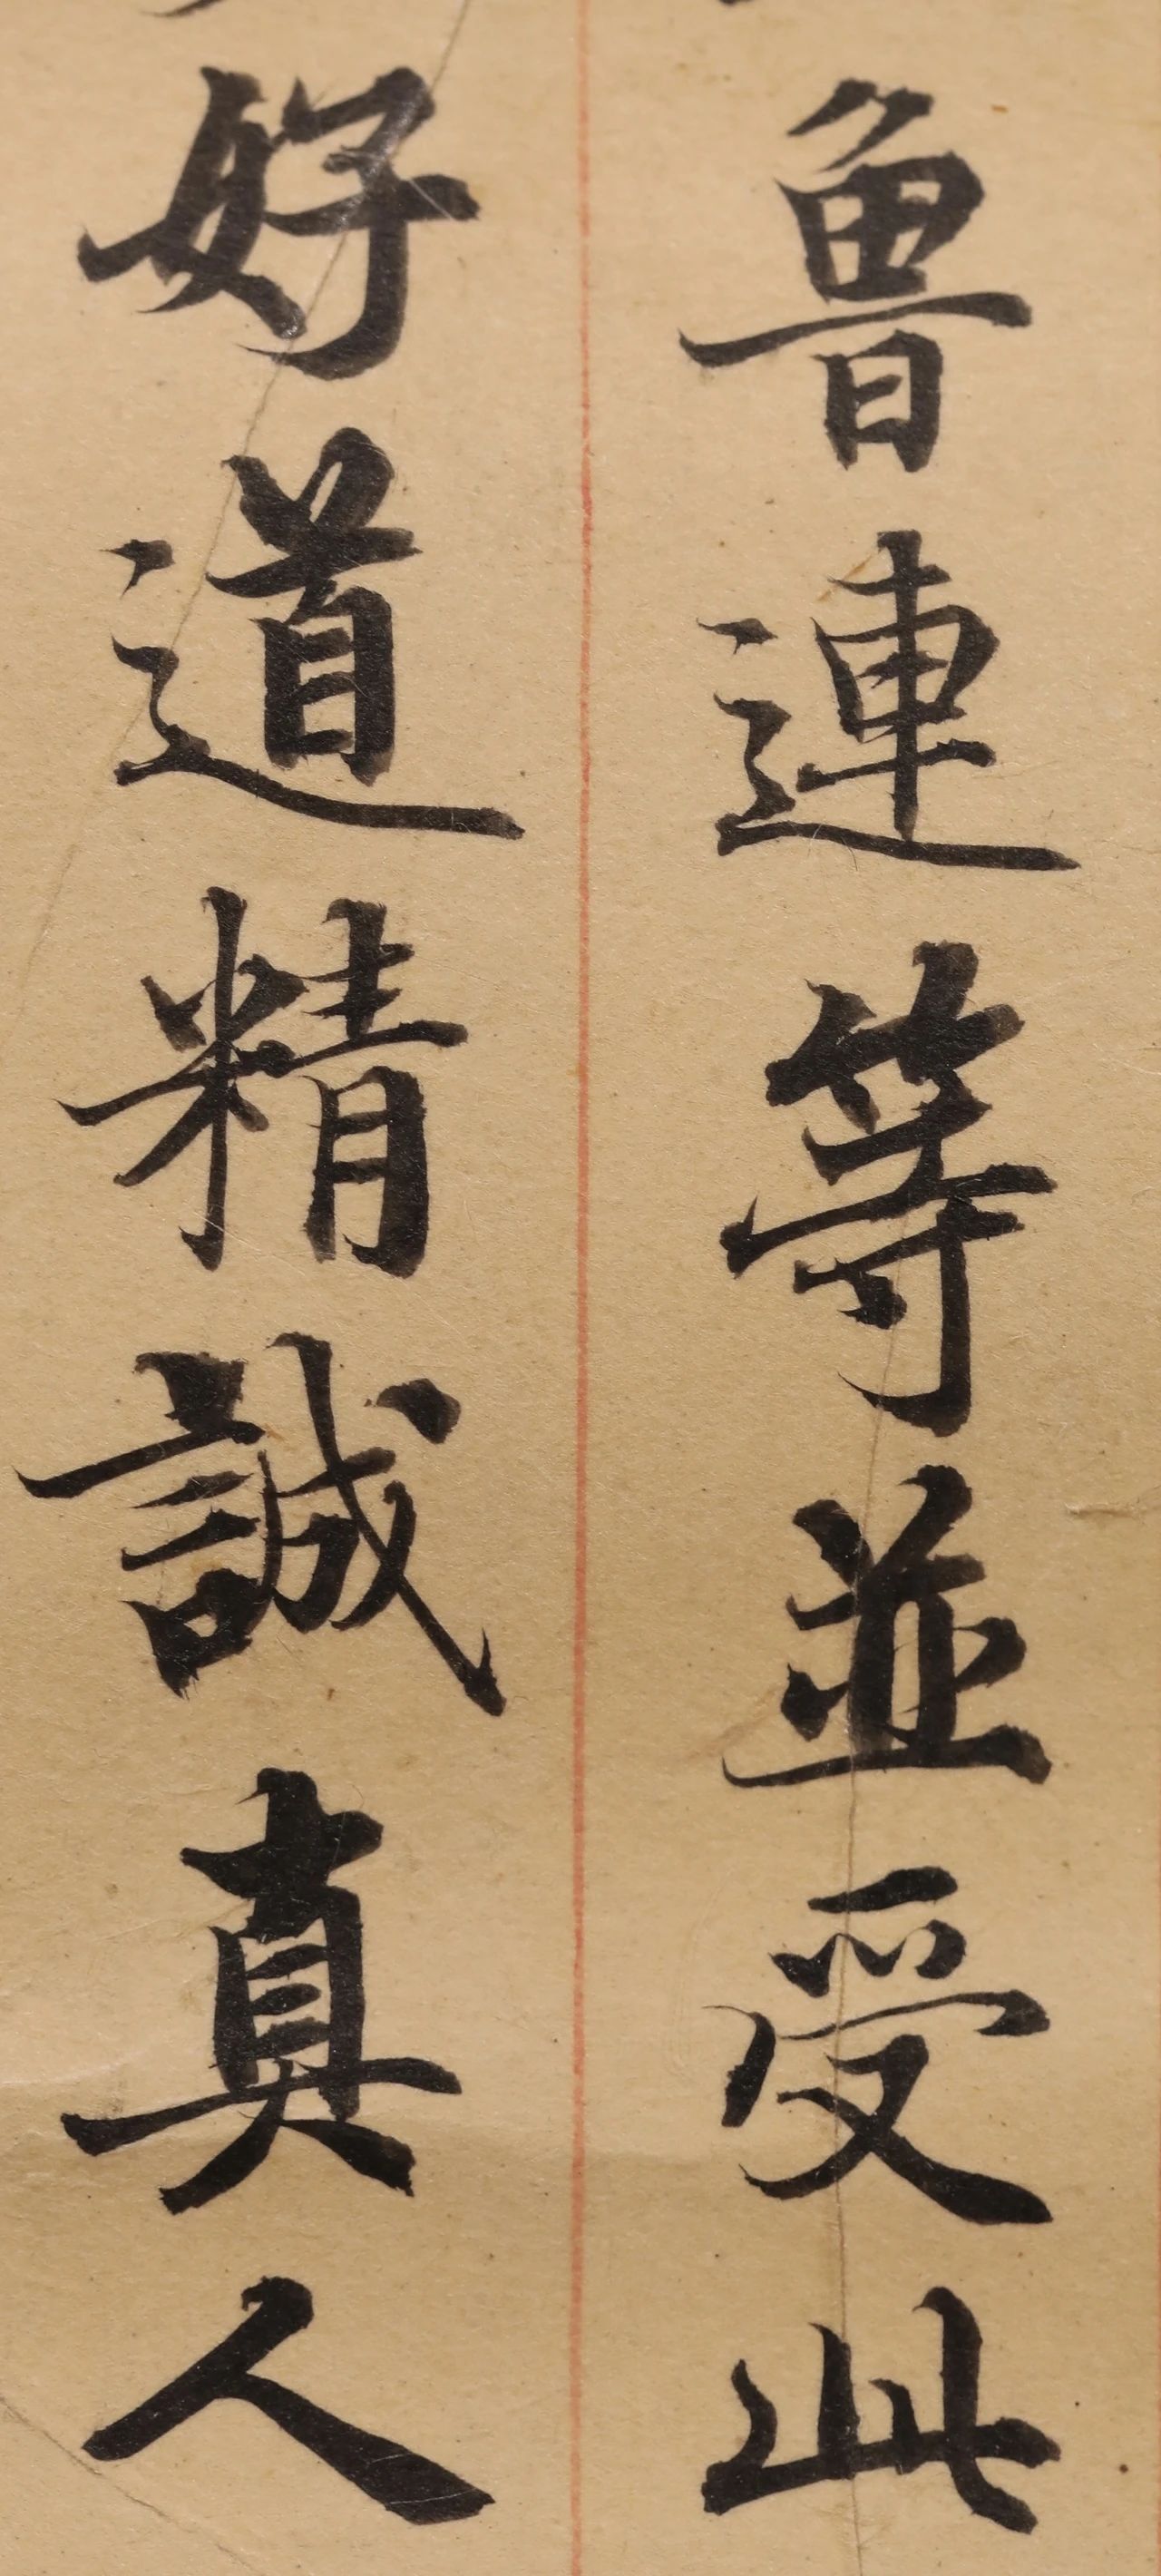 魯連等並受此
好道精誠真人